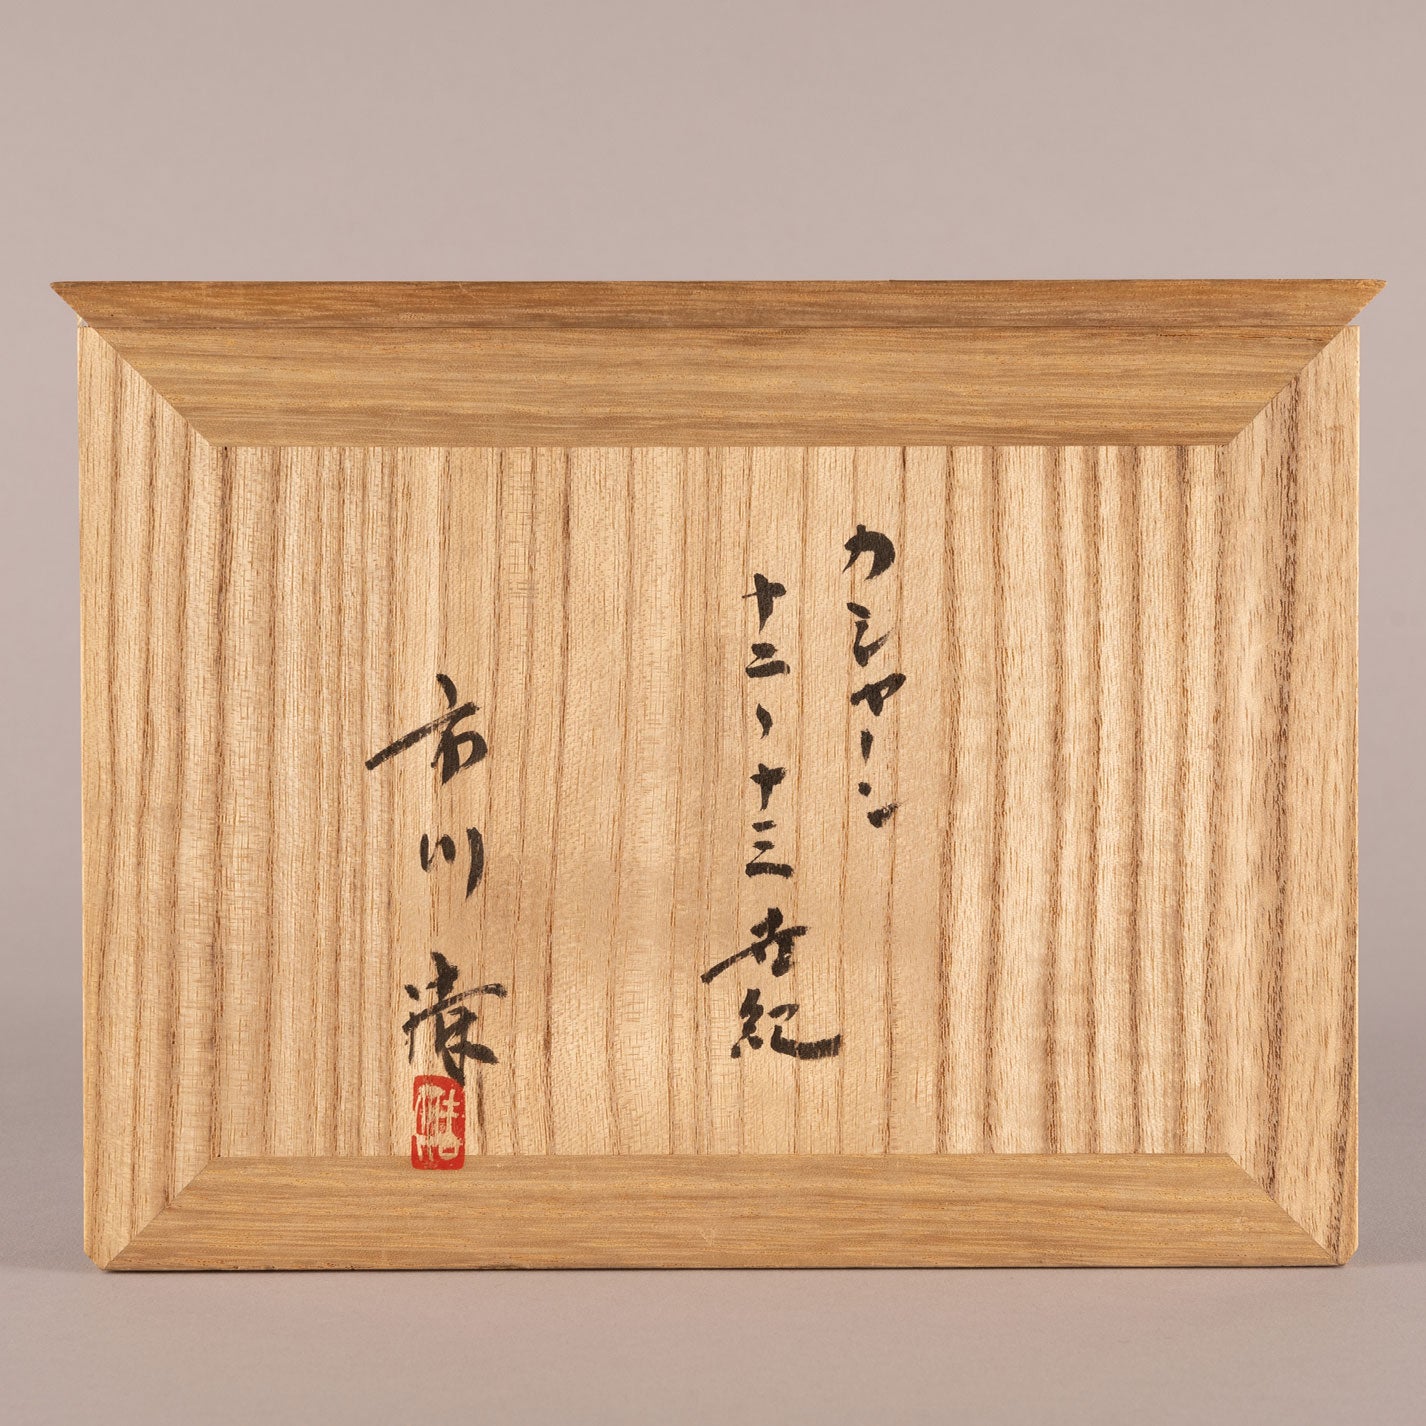 カシャーン
十二、十三世紀
市川